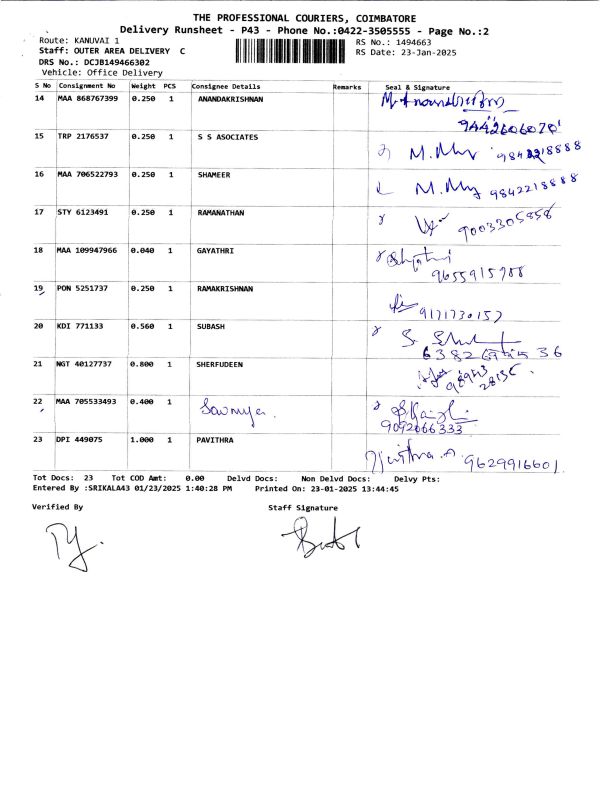 THE PROFESSIONAL COURIERS, COIMBATORE
Delivery Runsheet - P43 - Phone No.:0422-3505555 - Page No.:2
Route: KANUVAI 1 RS No.: 1494663
Staff: OUTER AREA DELIVERY C RS Date: 23-Jan-2025
DRS No.: DCJB149466302
Vehicle: Office Delivery
S No Consignment No Weight PCS Consignee Details Remarks Seal & Signature
14 MAA 868767399 0.250 1 ANANDAKRISHNAN
9442606070
15 TRP 2176537 0.250 1 S S ASOCIATES
M.
16 MAA 706522793 0.250 1 SHAMEER
M. 9842218888
17 STY 6123491 0.250 1 RAMANATHAN
9003305858
18 MAA 109947966 0.040 1 GAYATHRI
19 PON 5251737 0.250 1 RAMAKRISHNAN
20 KDI 771133 0.560 1 SUBASH
S.
21 NGT 40127737 0.800 1 SHERFUDEEN
22 MAA 705533493 0.400 1 Sowmya
9092066333
23 DPI 449075 1.000 1 PAVITHRA
9629916601
Tot Docs: 23 Tot COD Amt: 0.00 Delvd Docs: Non Delvd Docs: Delvy Pts:
Entered By :SRIKALA43 01/23/2025 1:40:28 PM Printed On: 23-01-2025 13:44:45
Verified By Staff Signature